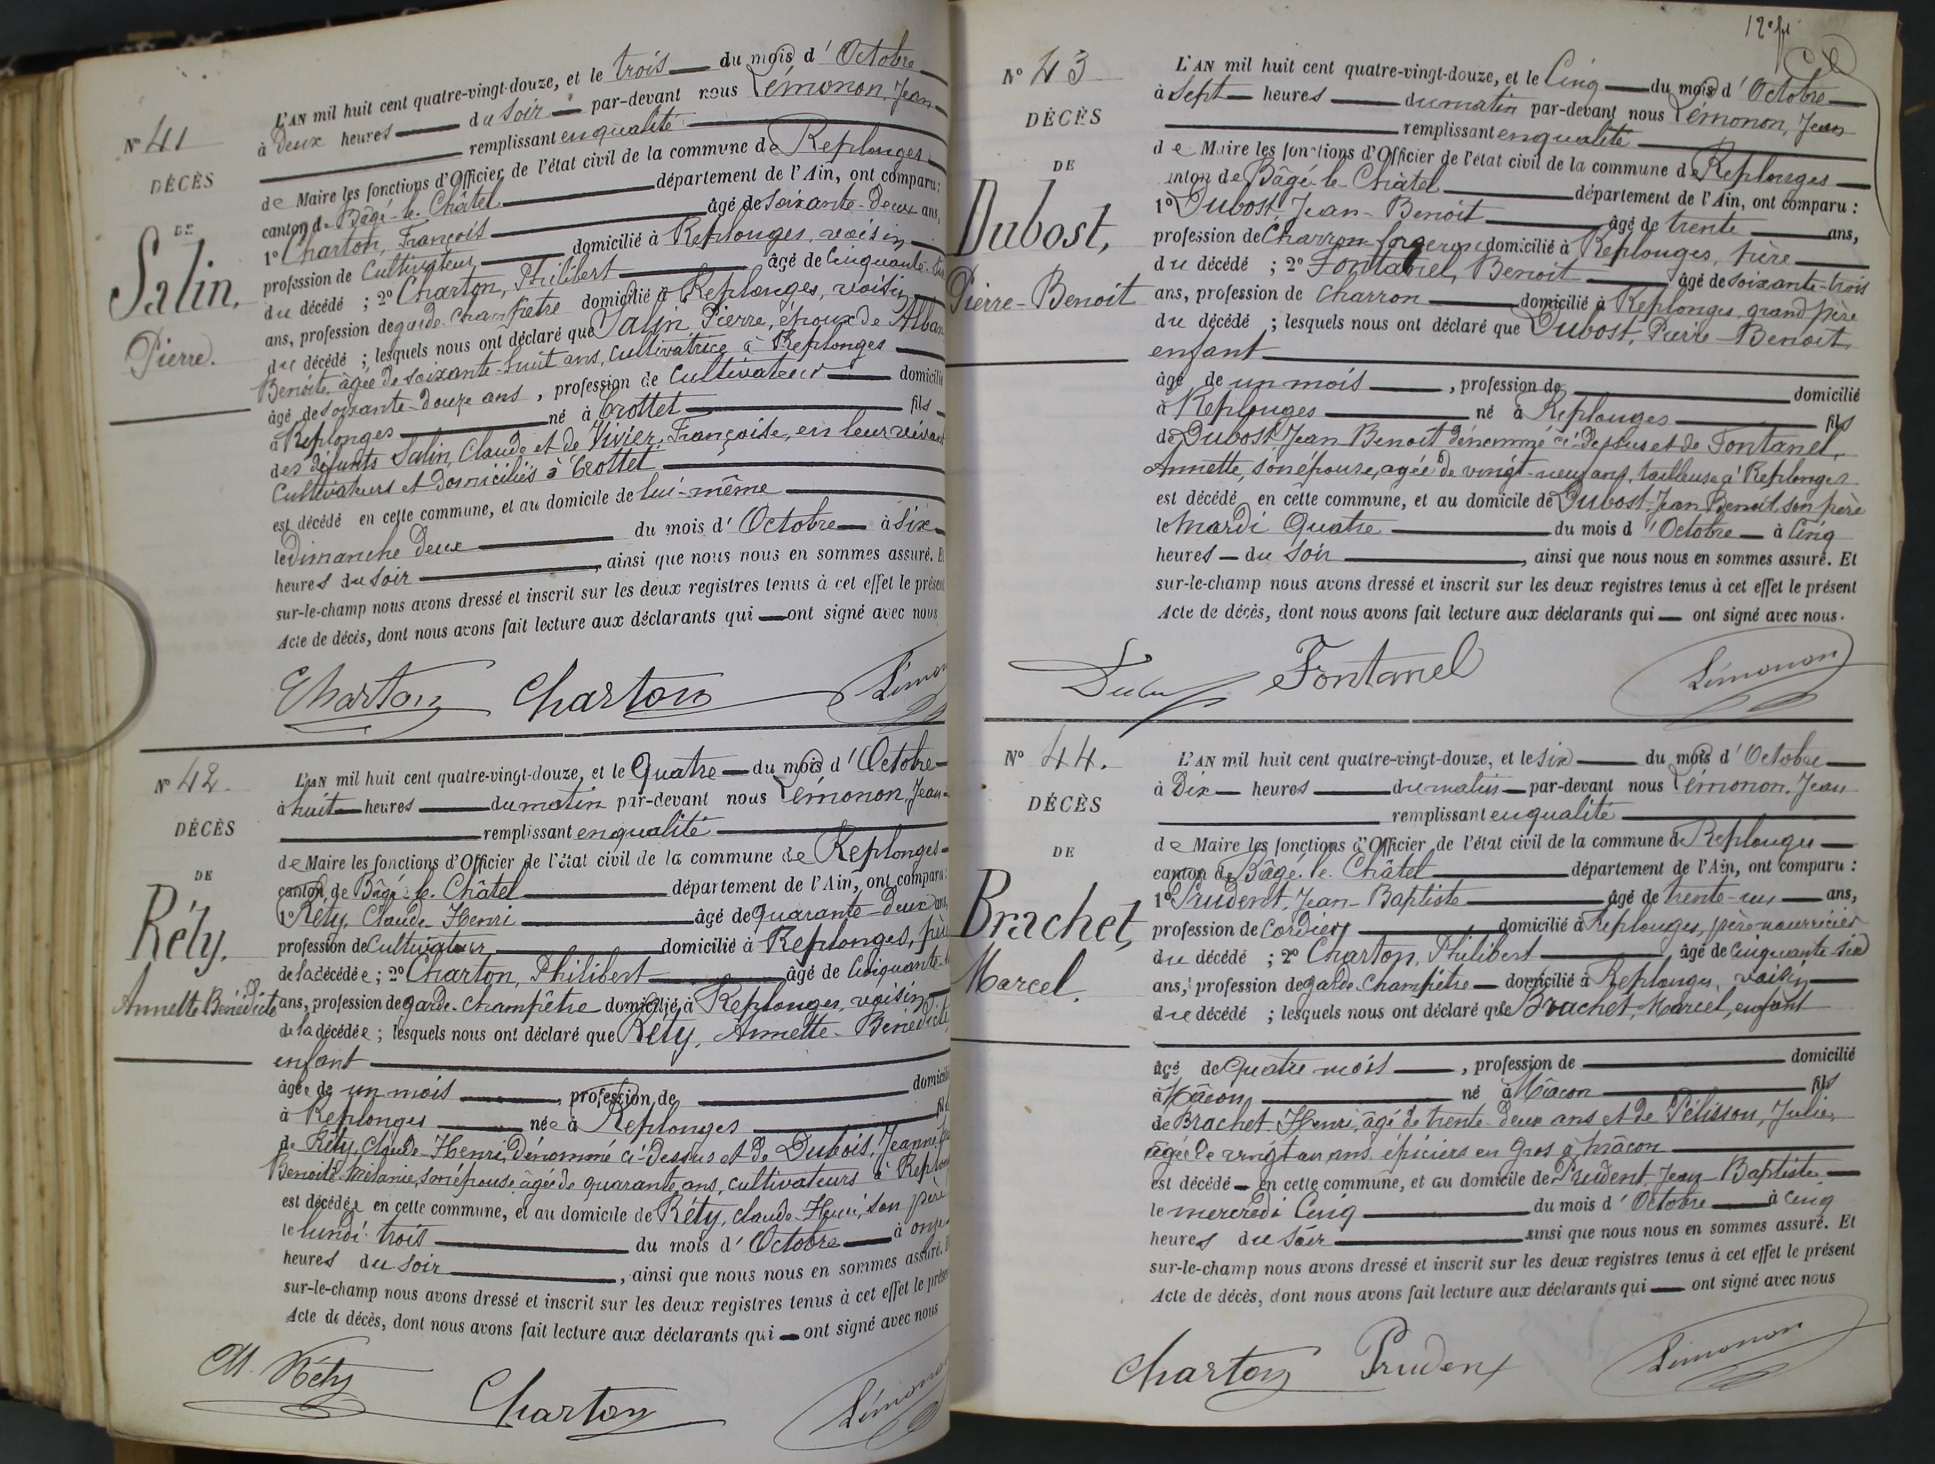 N° 41
DÉCÈS
DE
Salin,
Pierre.
L'AN mil huit cent quatre-vingt-douze, et le trois du mois d'Octobre
à Deux heures du soir par-devant nous Lémonon, Jean
remplissant en qualité
de Maire les fonctions d'Officier de l'état civil de la commune de Replonges
canton de Bâgé-le-Châtel département de l'Ain, ont comparu :
1° Charton, François âgé de soixante-deux ans,
profession de Cultivateur domicilié à Replonges, voisin
du décédé ; 2° Charton, Philibert âgé de Cinquante-
ans, profession de garde-champêtre domicilié à Replonges, voisin
du décédé ; lesquels nous ont déclaré que Salin, Pierre, époux de Alban
Benoîte, âgée de soixante-huit ans, cultivatrice à Replonges
âgé de soixante-douze ans, profession de Cultivateur domicilié
à Replonges né à Crottet fils
des défunts Salin, Claude et de Vivier, Françoise, en leur vivant
Cultivateurs et domiciliés à Crottet
est décédé en cette commune, et au domicile de lui-même
le Dimanche Deux du mois d'Octobre à six
heures du soir, ainsi que nous nous en sommes assuré. Et
sur-le-champ nous avons dressé et inscrit sur les deux registres tenus à cet effet le présent
Acte de décès, dont nous avons fait lecture aux déclarants qui ont signé avec nous
Charton Charton Lémonon
N° 42
DÉCÈS
DE
Réty.
Annette Bénédicte
L'AN mil huit cent quatre-vingt-douze, et le Quatre du mois d'Octobre
à huit heures du matin par-devant nous Lémonon, Jean
remplissant en qualité
de Maire les fonctions d'Officier de l'état civil de la commune de Replonges
canton de Bâgé-le-Châtel département de l'Ain, ont comparu :
1° Réty, Claude-Henri âgé de quarante-deux ans,
profession de Cultivateur domicilié à Replonges, père
de la décédée ; 2° Charton, Philibert âgé de Cinquante-
ans, profession de garde-champêtre domicilié à Replonges, voisin
de la décédée ; lesquels nous ont déclaré que Réty, Annette-Bénédicte,
enfant
âgée de un mois, profession de domicilié
à Replonges née à Replonges
de Réty, Claude-Henri, Dénommé ci-dessus et de Dubois, Jeanne
Benoîte Mélanie, son épouse âgée de quarante ans, cultivateurs à Replonges
est décédée en cette commune, et au domicile de Réty, Claude-Henri, son père
le lundi trois du mois d'Octobre à onze
heures du soir, ainsi que nous nous en sommes assuré. Et
sur-le-champ nous avons dressé et inscrit sur les deux registres tenus à cet effet le présent
Acte de décès, dont nous avons fait lecture aux déclarants qui ont signé avec nous
Réty Charton Lémonon
N° 43
DÉCÈS
DE
Dubost,
Pierre-Benoit
L'AN mil huit cent quatre-vingt-douze, et le Cinq du mois d'Octobre
à Sept heures du matin par-devant nous Lémonon, Jean
remplissant en qualité
de Maire les fonctions d'Officier de l'état civil de la commune de Replonges
canton de Bâgé-le-Châtel département de l'Ain, ont comparu :
1° Dubost, Jean-Benoit âgé de trente ans,
profession de Charron-forgeron domicilié à Replonges, père
du décédé ; 2° Fontanel, Benoit âgé de soixante-trois
ans, profession de charron domicilié à Replonges, grand père
du décédé ; lesquels nous ont déclaré que Dubost, Pierre-Benoit,
enfant
âgé de un mois, profession de domicilié
à Replonges né à Replonges fils
de Dubost Jean Benoit dénommé ci-Dessus et de Fontanel,
Annette, son épouse, agée de vingt-neuf ans, tailleuse à Replonges
est décédé en cette commune, et au domicile de Dubost Jean Benoit, son père
le Mardi Quatre du mois d'Octobre à Cinq
heures du soir, ainsi que nous nous en sommes assuré. Et
sur-le-champ nous avons dressé et inscrit sur les deux registres tenus à cet effet le présent
Acte de décès, dont nous avons fait lecture aux déclarants qui ont signé avec nous.
Fontanel Lémonon
N° 44.
DÉCÈS
DE
Brachet,
Marcel.
L'AN mil huit cent quatre-vingt-douze, et le six du mois d'Octobre
à Dix heures du matin par-devant nous Lémonon, Jean
remplissant en qualité
de Maire les fonctions d'Officier de l'état civil de la commune de Replonges
canton de Bâgé-le-Châtel département de l'Ain, ont comparu :
1° Prudent, Jean-Baptiste âgé de trente-un ans,
profession de Cordier domicilié à Replonges, père nourricier
du décédé ; 2° Charton, Philibert âgé de Cinquante-six
ans, profession de garde-champêtre domicilié à Replonges, voisin
du décédé ; lesquels nous ont déclaré que Brachet, Marcel, enfant
âgé de quatre mois, profession de domicilié
à Mâcon né à Mâcon fils
de Brachet Henri, âgé de trente-deux ans et de Pélisson, Julie,
agée de vingt un ans, épiciers en gros à Mâcon
est décédé en cette commune, et au domicile de Prudent Jean-Baptiste
le mercredi Cinq du mois d'Octobre à Cinq
heures du soir ainsi que nous nous en sommes assuré. Et
sur-le-champ nous avons dressé et inscrit sur les deux registres tenus à cet effet le présent
Acte de décès, dont nous avons fait lecture aux déclarants qui ont signé avec nous
Charton Prudent Lémonon